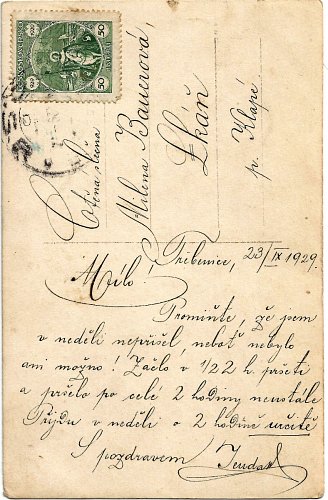 Ctěná slečna
Milena Bauerová,
Lkáň
p. Klapé
Třebenice, 23/IX 1929.
Mílo!
Promiňte, že jsem
v neděli nepřišel, neboť nebylo
ani možno! Začlo v 1/2 2 h. pršeti
a pršelo po celé 2 hodiny neustále
Příjdu v neděli o 2 hodině určitě
S pozdravem
50
50